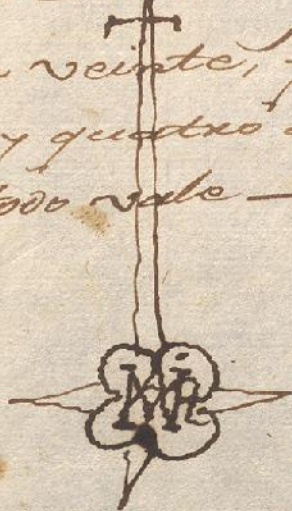 veinte,
y quatro
todo vale —
MR